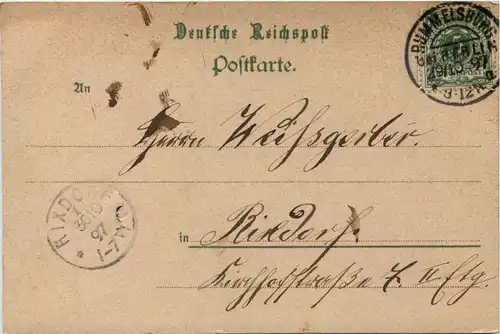 Deutsche Reichspost
Postkarte.
RUMMELSBURG
b. BERLIN
97
9-12 N.
An
Herrn Weißgerber.
RIXDORF
1
30 6
97
1-7
in Rixdorf.
Kirchhofstraße 7. II Etg.